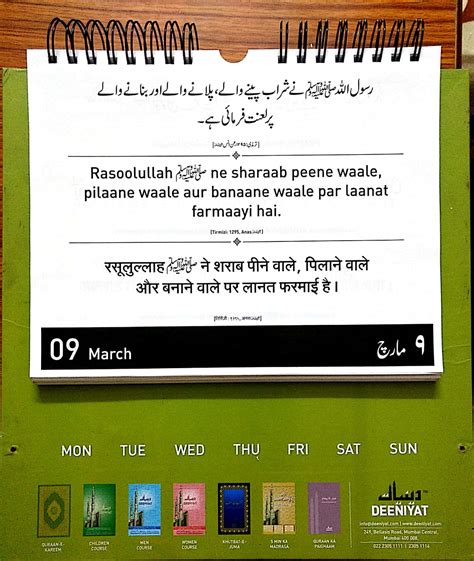 رسول اللہ ﷺ نے شراب پینے والے، پلانے والے اور بنانے والے
پر لعنت فرمائی ہے۔
Rasoolullah ﷺ ne sharaab peene waale,
pilaane waale aur banaane waale par laanat
farmaayi hai.
[Tirmizi: 1295, Anas]
रसूलुल्लाह ﷺ ने शराब पीने वाले, पिलाने वाले
और बनाने वाले पर लानत फरमाई है।
09 March
۹ مارچ
MON TUE WED THU FRI SAT SUN
QURAAN-E-KAREEM
CHILDREN COURSE
MEN COURSE
WOMEN COURSE
KHUTBAT-E-JUMA
5 MIN KA MADRASA
QURAAN KA PAIGHAAM
دینیات
DEENIYAT
info@deeniyat.com | www.deeniyat.com
249, Bellasis Road, Mumbai Central,
Mumbai 400 008.
022 2305 1111 - 2305 1114